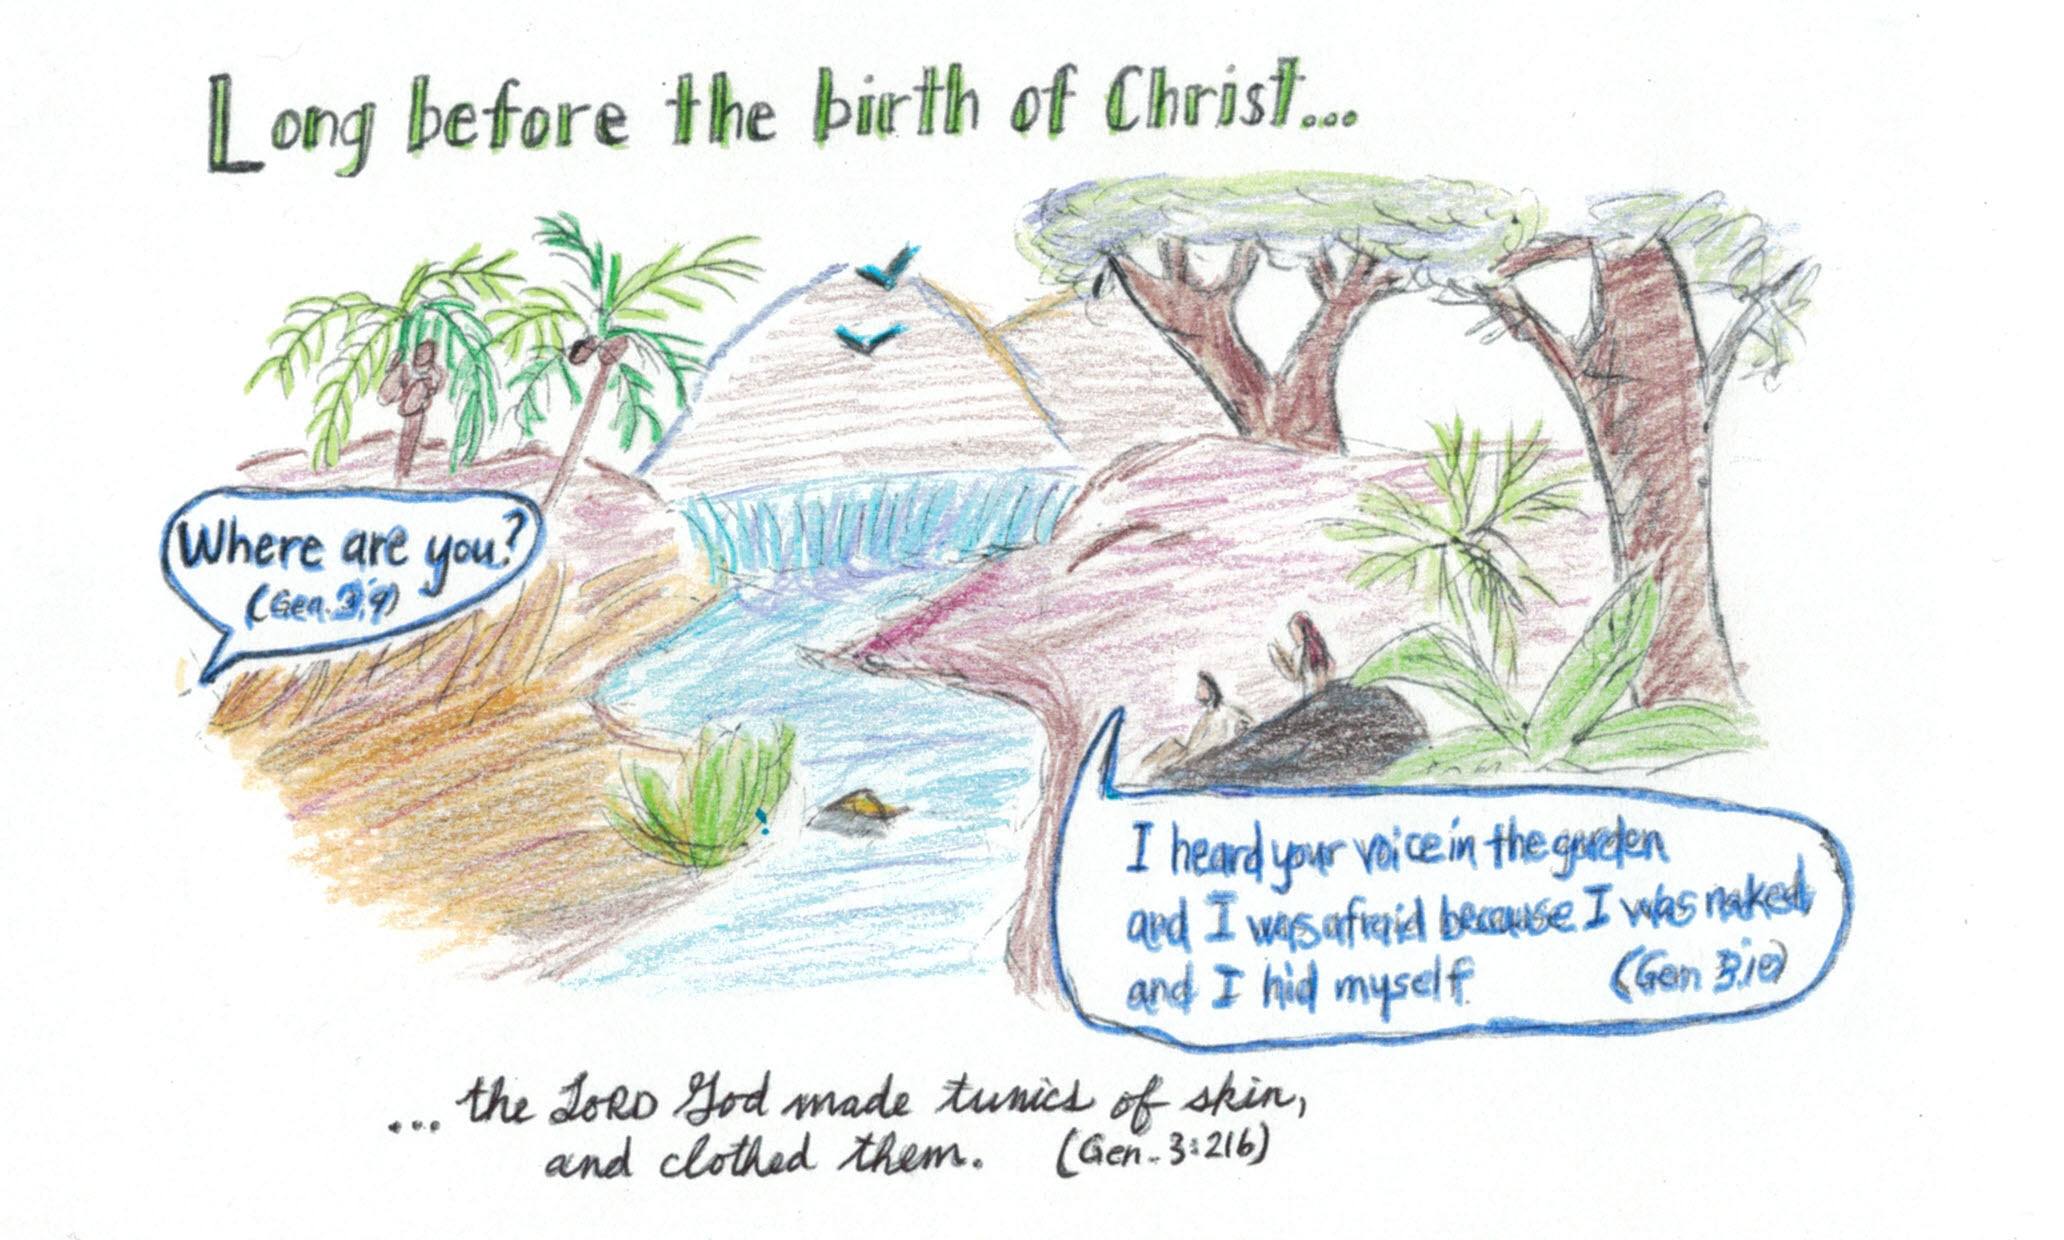 Long before the birth of Christ...
Where are you?
(Gen. 3:9)
I heard your voice in the garden
and I was afraid because I was naked
and I hid myself.
(Gen 3:10)
... the LORD God made tunics of skin,
and clothed them. (Gen. 3:21b)